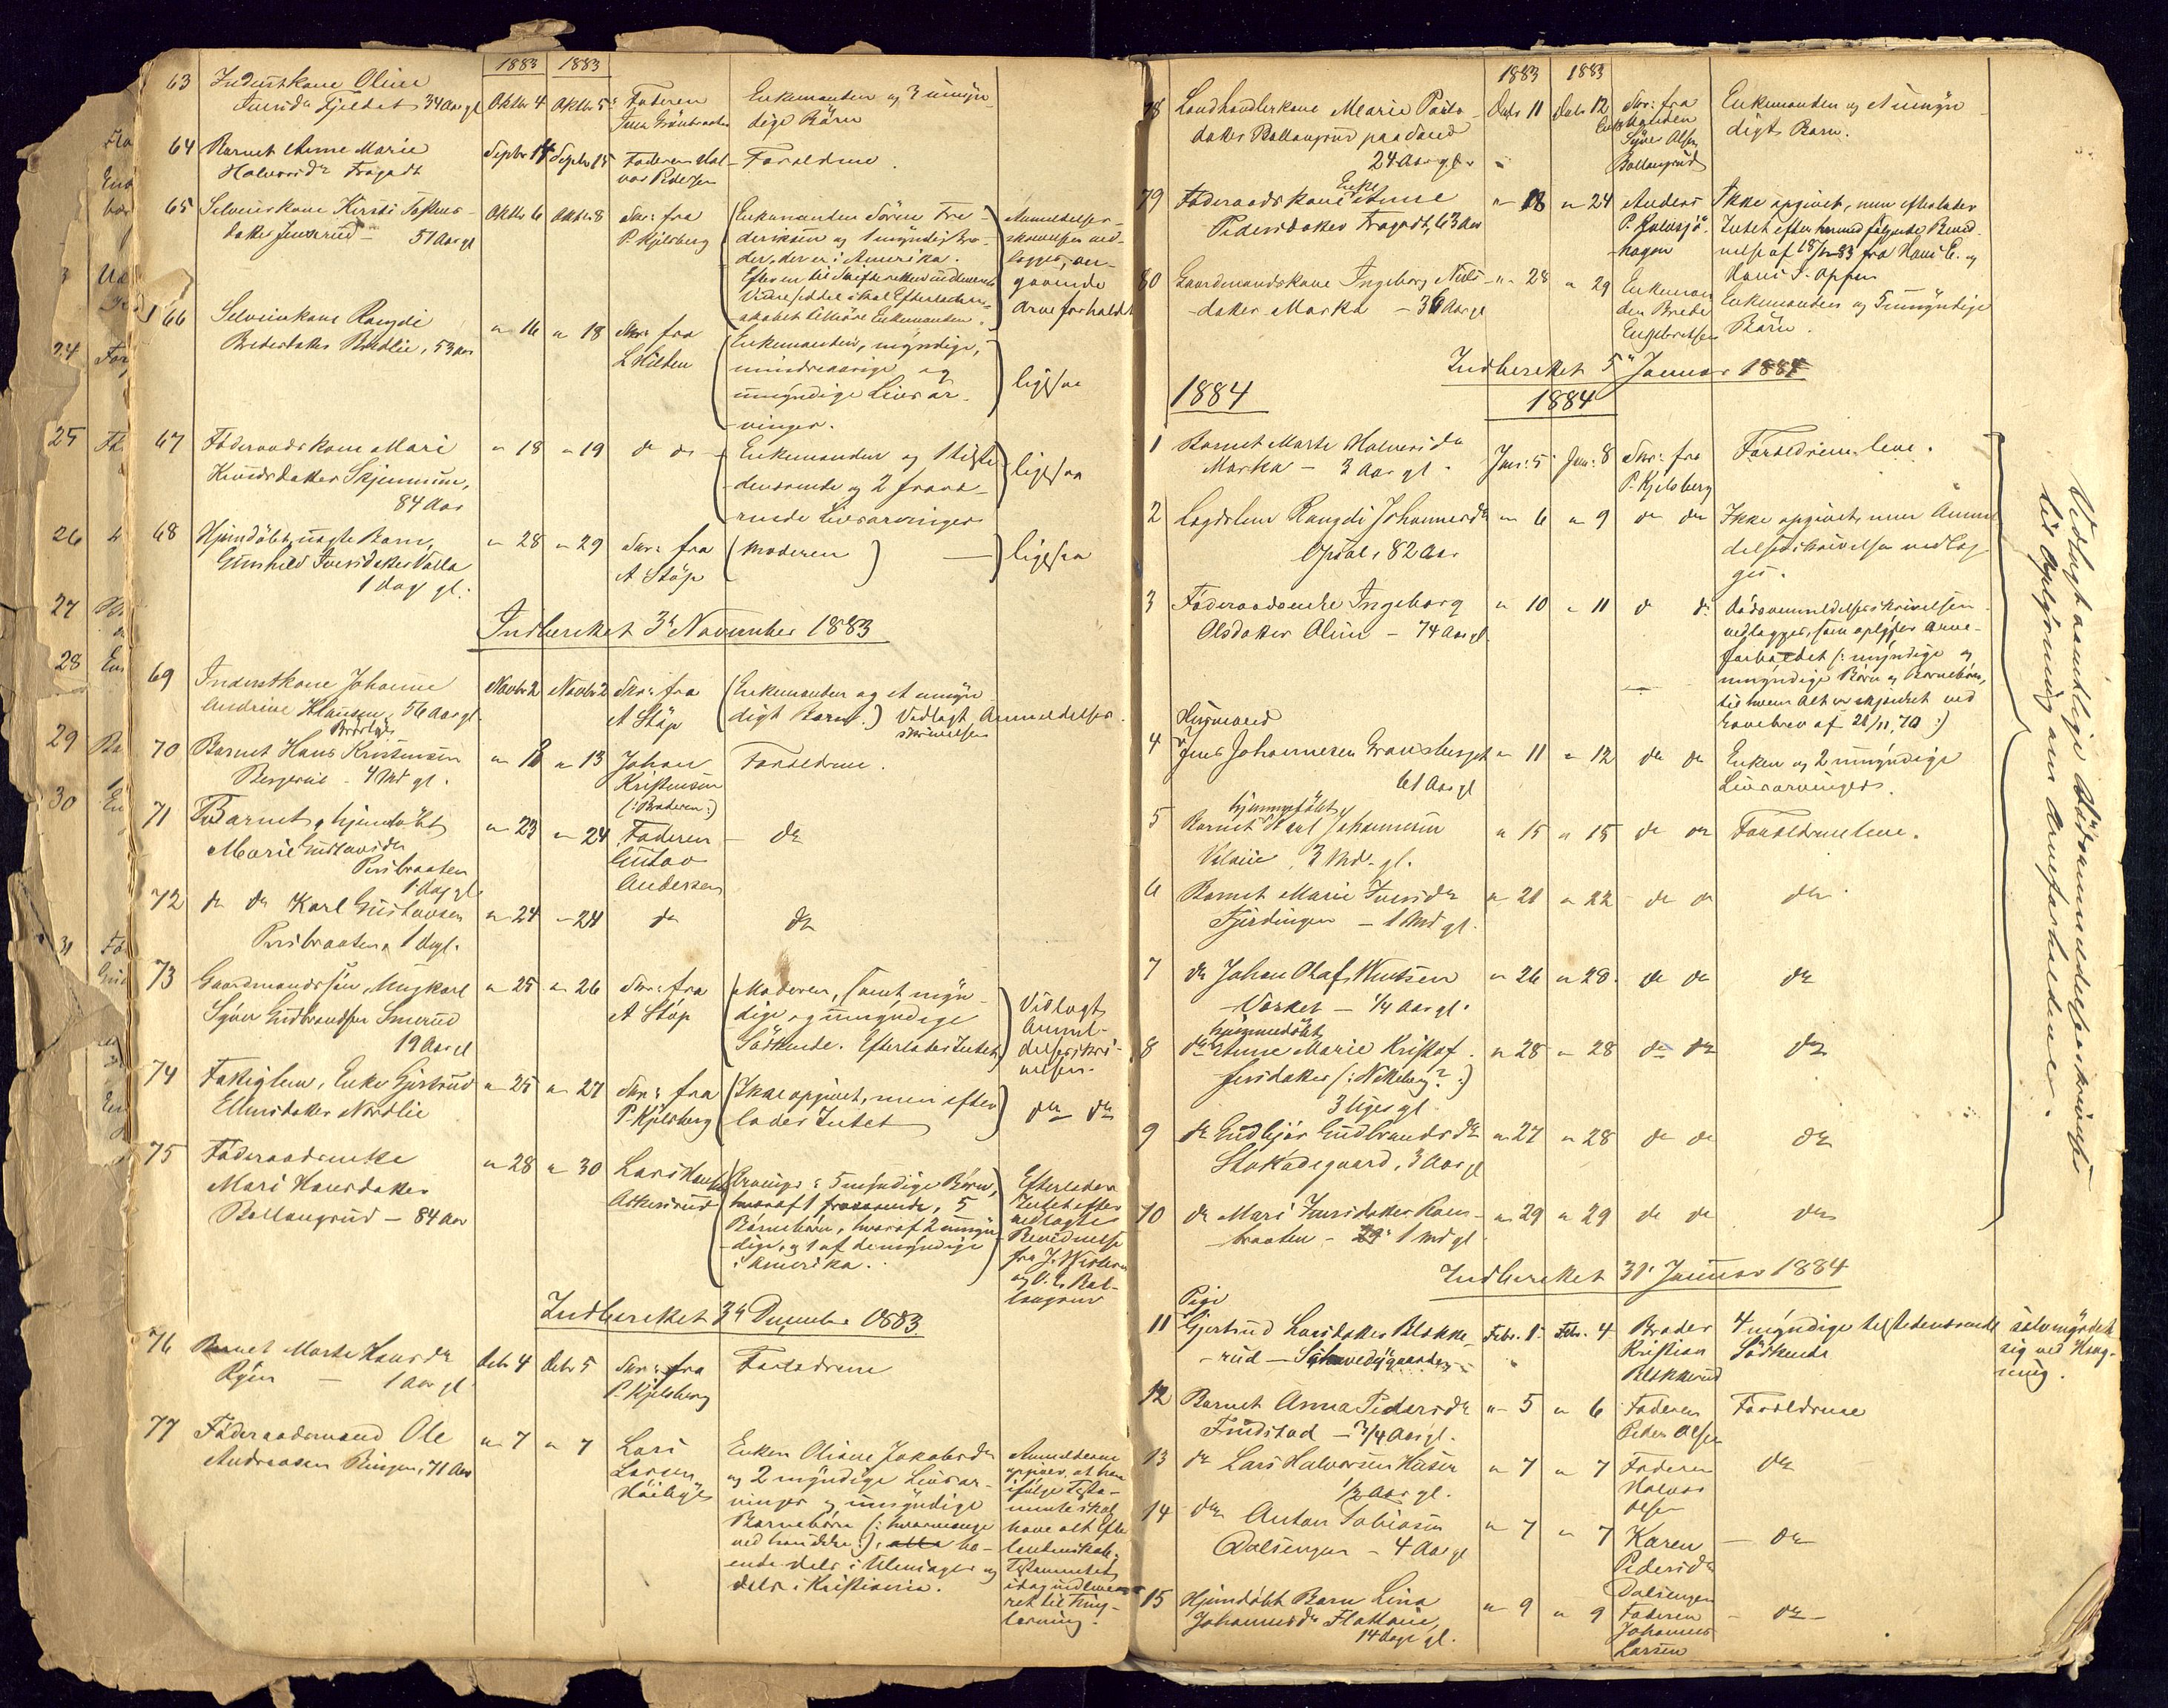 1883 1883
63 Inderstkone Oline
Iversdr Fjeldet 34 Aar gl Oktbr 4 Oktbr 5 Faderen Enkemanden og 3 umyn-
dige Börn
64 Barnet Anne Marie Septbr 14 Septbr 15 Faderen Hal- Forældrene.
Halvorsdr Fragodt vor Pedersen
65 Selveierkone Kirsti
datter Jensrud 51 Aar gl Oktbr 6 Oktbr 8 Skr: fra
P. Kjelsberg
(Enkemanden Sören Fre-
deriksen og 1 myndig Bro-
der, der er i Amerika.
Anmeldelses-
skrivelsen ved-
lægges, an-
gaaende
Arveforholdet
66 Selveierkone Rangdi
Pedersdatter Bredlie, 53 Aar " 16 " 18 Skr: fra
L Hilden
(Enkemanden, myndige,
mindreaarige og
umyndige Livsar-
vinger.) ligesaa
67 Föderaadskone Mari
Knudsdatter Skjennum,
84 Aar " 18 " 19 do do
Enkemanden og 1 tilste-
deværende og 2 fravæ-
rende Livsarvinger ligesaa
68 Hjemdöbt uægte Barn,
Gunhild Iversdatter Valla
1 dag gl. " 28 " 29 Skr: fra
A Stöp (Moderen) ligesaa
Indberettet 3die November 1883
69 Inderstkone Johanne
Andrine Hansen, 56 Aar gl. Novbr 2 Novbr 2 Skr: fra
A Stöp (Enkemanden og et umyn-
digt Barn.) Vedlagt Anmeldelses-
skrivelsen
70 Barnet Hans Kristensen
Bergerud 4 Md gl. " 12 " 13 Johan
Kristensen
(: Broderen :) Forældrene.
71 Barnet, hjemdöbt
Marie Gustavsdr
Persbraaten
1 dag gl " 23 " 24 Faderen
Gustav
Andersen do
72 do do Karl Gustavsen
Persbraaten, 1 dag gl. " 24 " 24 do do
73 Gaardmandssön, Ungkarl
Syver Gudbrandsen Smerud
19 Aar gl " 25 " 26 Skr: fra
A Stöp
(Moderen, samt myn-
dige og umyndige
Södskende. Efterlader Intet)
Vedlagt
Anmel-
delsesskri-
velsen.
74 Fattiglem, Enke Gjertrud
Ellensdatter Nordlie " 25 " 27 Skr: fra
P. Kjelsberg
(Ikke opgivet, men efter-
lader Intet) do do
75 Föderaadsenke
Mari Hansdatter
Bollangrud - 84 Aar " 28 " 30 Lars Hansen
Askerud
(Arvinger: 5 myndige Börn,
hvoraf 1 fraværende, 5
Börnebörn, hvoraf 2 umyn-
dige, og 1 af de myndige
i Amerika.
Efterlader
Intet efter
vedlagte
Bevidnelse
fra
Indberettet 3die December 1883.
76 Barnet Marte Hansdr
Röjen - 1 Aar gl. Debr 4 Debr 5 Skr: fra
P. Kjelsberg Forældrene
77 Föderaadsmand Ole
Andreasen Ringen, 71 Aar " 7 " 7 Lars
Larsen
Enken Oliane Jakobsdr
og 2 myndige Livsar-
vinger og umyndige
Barnebörn (: hvormange
ved han ikke :), bo-
ende dels i Ullensager og
dels i Kristiania.
Anmelderen
opgiver, at han
ifölge Testa-
mente skal
have alt Efter-
ladenskab.
Testamentet
idag indleve-
ret til Thing-
læsning.
1883 1883
78 Landhandlerkone Marie Pauls-
datter Bollangrud paa
24 Aar gl. Debr 11 Debr 12 Skr: fra
Enkemanden
Syver Olsen
Bollangrud
Enkemanden og et umyn-
digt Barn.
79 Föderaadskone Enke Anne
Pedersdatter Fragodt, 63 Aar " 18 " 24 Anders
P.
hagen
Ikke opgivet, men efterlader
Intet efter hermed fölgende Bevid-
nelse af fra Hans E. og
Hans
80 Gaardmandskone Ingeborg Niels-
datter Marka - 36 Aar gl " 28 " 29 Enkeman-
den Brede
Engebretsen
Enkemanden og 5 umyndige
Börn.
Indberettet 5te Januar 1884
1884 1884
1 Barnet Marte Halvorsdr
Marka - 3 Aar gl. Jan: 5 Jan: 8 Skr: fra
P. Kjelsberg Forældrene leve.
2 Lægdslem Rangdi Johannesdr
Opsal, 82 Aar " 6 " 9 do do
Ikke opgivet, men Anmel-
delsesskrivelsen vedlæg-
ges.
3 Föderaadsenke Ingeborg
Olsdatter - 74 Aar gl. " 10 " 11 do do
Dödsanmeldelsesskrivelsen
vedlægges, som oplyser Arve-
forholdet (: myndige og
umyndige Börn og Börnebörn,
til hvem Alt er skjænket ved
Gavebrev af 26/11, 70 :)
4 Husmand
Jens Johannesen Gransberget
61 Aar gl " 11 " 12 do do
Enken og 2 umyndige
Livsarvinger.
5 hjemmedöbt
Barnet Karl Johannesen
3 Md. gl. " 15 " 15 do do Forældrene leve.
6 Barnet Marie Iversdr
Fjerdingen - 1 Md gl. " 21 " 22 do do do
7 do Johan Olaf Knutsen
Værket - 1/4 Aar gl. " 26 " 28 do do do
8 hjemmedöbt
do Anne Marie Kristof-
fersdatter (: Nikeberg? :)
3 Uger gl. " 28 " 28 do do do
9 do Gudbjör Gudbrandsdr
Stakadegaard, 3 Aar gl " 27 " 28 do do do
10 do Mari Iversdatter Roen-
braaten - 1 Md gl " 29 " 29 do do do
Vedlagt samtlige Dödsanmeldelsesskrivelser
til Oplysning om Arveforholdene.
Indberettet 31. Januar 1884
11 Pige
Gjertrud Larsdatter Blokke-
rud - Febr. 1 Febr. 4 Broder
Kristian
Blokkerud
4 myndige tilstedeværende
Södskende
selvmyrdet
sig ved Hæng-
ning.
12 Barnet Anna Pedersdr
Findstad - 3/4 Aar gl. " 5 " 6 Faderen
Peder Olsen Forældrene
13 do Lars Halvorsen
1/2 Aar gl. " 7 " 7 Faderen
Halvor
Olsen do
14 do Anton Tobiasen
Dalsengen - 4 Aar gl " 7 " 7 Karen
Pedersdr
Dalsengen do
15 Hjemdöbt Barn Lina
Johannesdr
14 dage gl. " 9 " 9 Faderen
Johannes
Larsen do